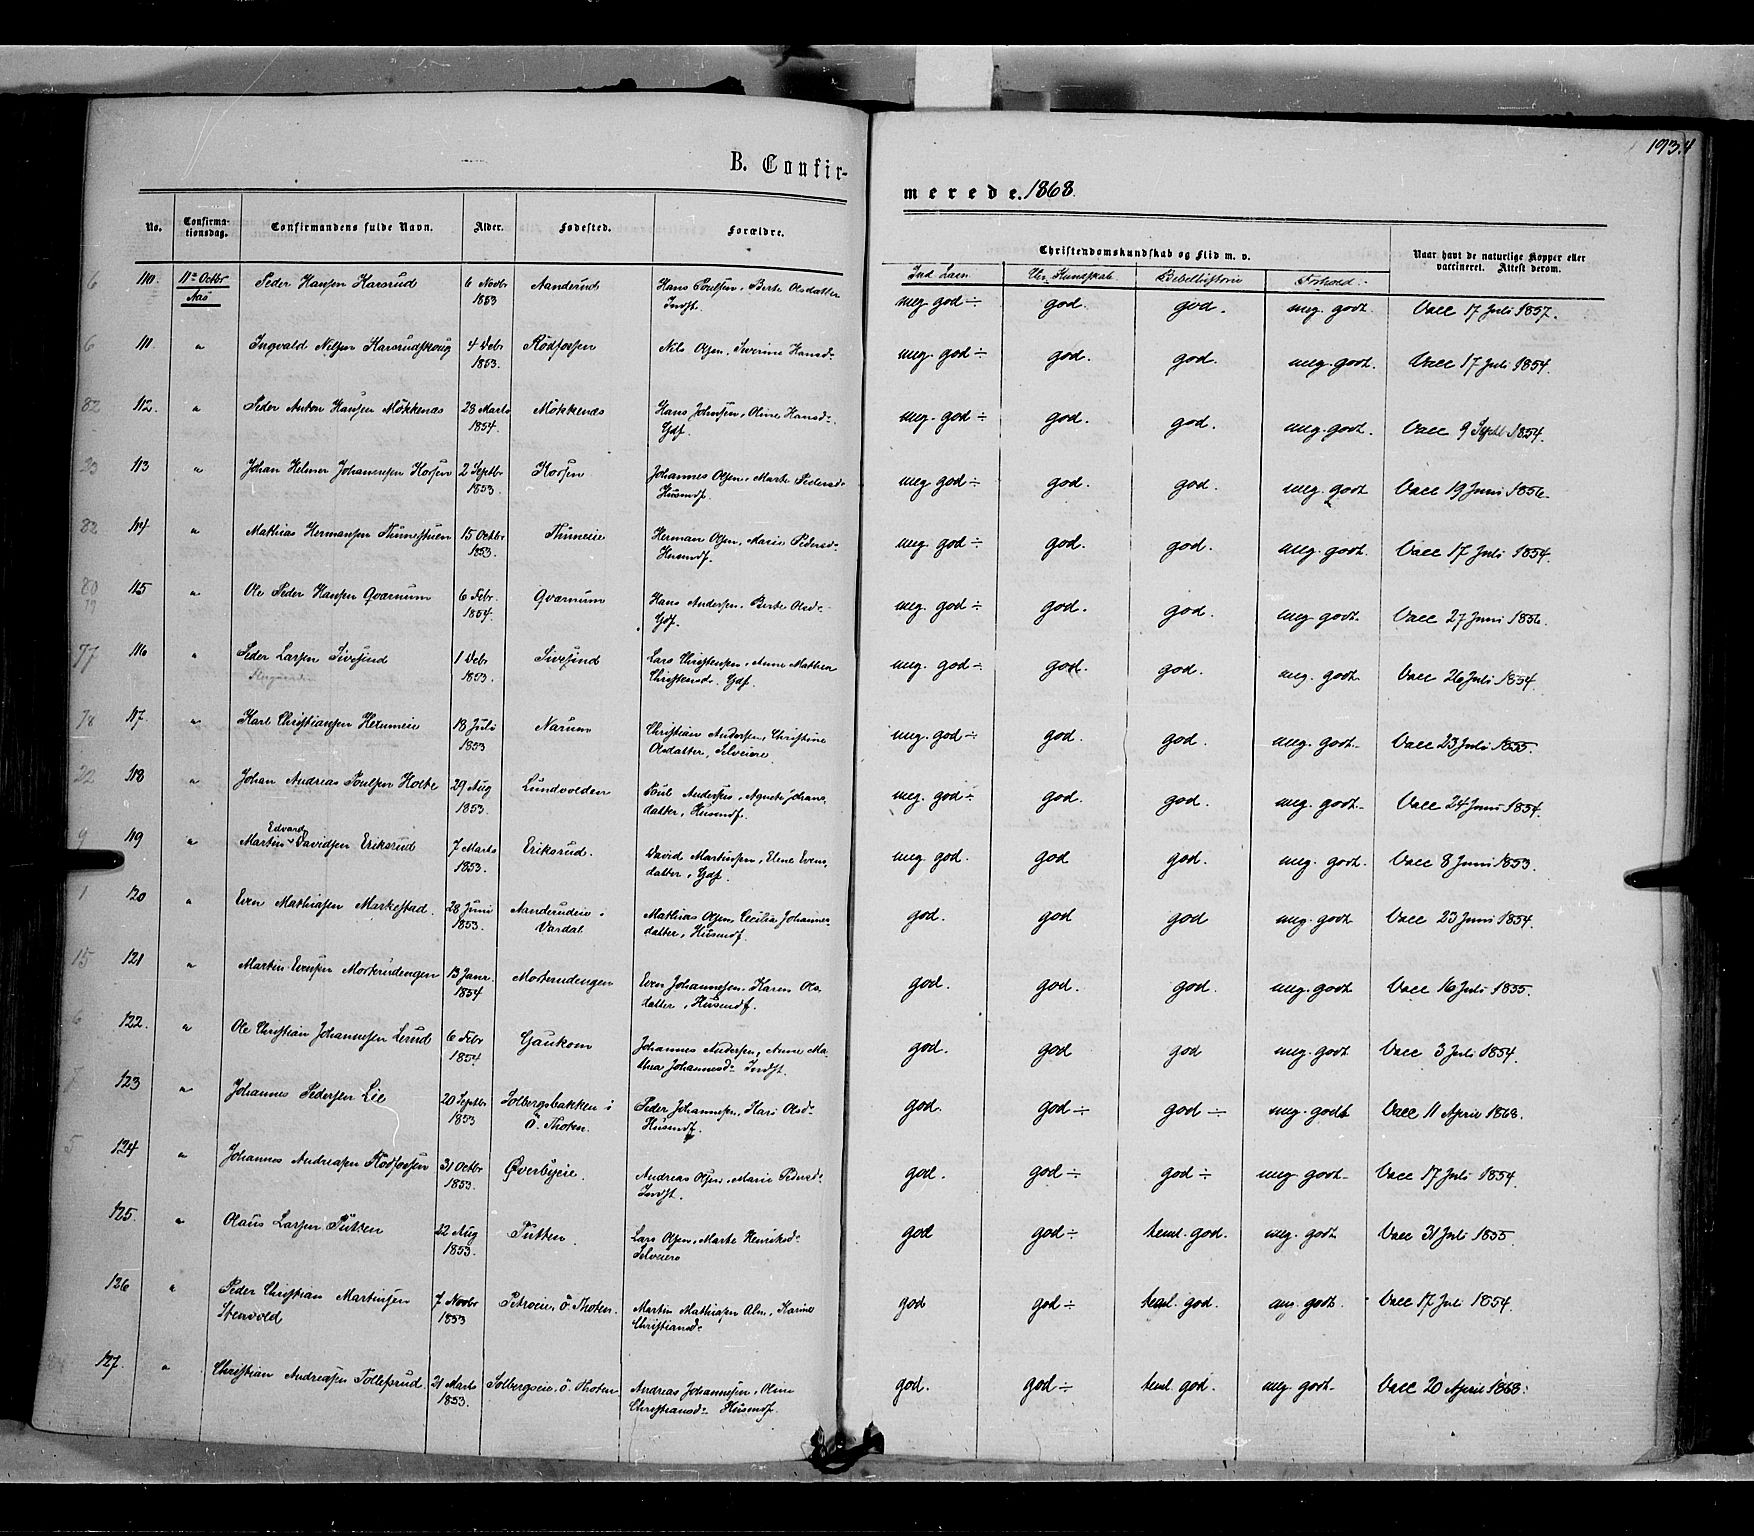 B. Confir-
merede. 1868.
1934
No. Confirma-tionsdag. Confirmandens fulde Navn. Alder. Fødested. Forældre. Christendomskundskab og Flid m. v. Naar havt de naturlige Kopper eller vaccineret. Attest derom.
Ver. Kundskab Bibelhistorie Forhold.
6 110. 11te Octbr Aas Peder Hansen Karsrud 6 Novbr 1853 Aanderud Hans Poulsen, Berte Olsdatter Indst. meg god ÷ god. god. meg. godt. Vacc 17 Juli 1857.
6 111. " Ingvald Nilsen Karsrudskoug 4 Debr 1853. Rødfossen Nils Olsen, Severine Hansd: meg. god ÷ god. god. meg. godt. Vacc 17 Juli 1854.
82 112. " Peder Anton Hansen Møkkenæs 28 Marts 1854. Møkkenæs Hans Johnsen, Oline Hansd: Gdf. meg. god ÷ god. god. meg. godt. Vacc 9 Septb 1854.
23 113 " Johan Helmer Johannesen Korsen 2 Septbr 1853 Korsen Johannes Olsen, Marte Pedersd: Husmdf. meg god ÷ god. god. meg. godt Vacc 19 Juni 1856.
82 114 " Mathias Hermansen Thunestuen 15 Octbr 1853. Thuneeie Herman Olsen, Marie Pedersd: Husmdf. meg. god ÷ god. god. meg. godt. Vacc 17 Juli 1854.
80 19 115 " Ole Peder Hansen Qværnum 6 Febr. 1854. Qværnum Hans Andersen, Berte Olsd: Gdf. meg. god ÷ god. god. meg godt. Vacc 27 Juni 1856.
77 116 " Peder Larsen Sivesind 1 Debr 1853. Sivesind Lars Christensen, Anne Mathea Christensd: Gdf. meg. god ÷ god. god. meg. godt. Vacc 26 Juli 1854.
78 117. " Karl Christiansen Hexumeie 18 Juli 1853 Narum Christian Andersen, Christine Olsdatter, Selveiere. meg. god ÷ god. god. meg. godt. Vacc 23 Juli 1855.
22 118 " Johan Andreas Poulsen Holte 29 Aug 1853. Lundvolden Poul Andersen, Agnete Johansdatter, Husmdf. meg. god ÷ god. god. meg. godt. Vacc 24 Juni 1854.
9 119 " Martin Edvard Davidsen Eriksrud 7 Marts 1853. Eriksrud. David Martinsen, Elene Evensdatter, Gdf. meg god. god god. meg. godt. Vacc 8 Juni 1853.
1 120 " Even Mathiasen Markestad. 28 Juni 1853. Aanderudeie i Vardal. Mathias Olsen, Cecilia Johannesdatter, Husmdf. god. god god meg. godt Vacc 23 Juni 1854.
15 121 " Martin Evensen Morterudengen 13 Janr. 1854 Morterudengen Even Johannesen, Karen Olsdatter, Husmdf. god. god. god. meg. godt Vacc 16 Juli 1855.
6 122. " Ole Christian Johannesen Lerud 6 Febr 1854 Gaukom Johannes Andersen, Anne Mathea Johannesd: Indst. god. god god meg. godt Vacc 3 Juli 1854.
7 123 " Johannes Pedersen Lie 20 Septbr 1853 Solbergsbakken i Ö. Thoten. Peder Johannesen, Kari Olsd: Husmdf. god. god ÷ god ÷ meg. godt Vacc 11 April 1868.
5 124 " Johannes Andreasen Rødfossen 31 Octbr 1853. Øverbyeie. Andreas Olsen, Marie Pedersd: Indst. god. god ÷ god ÷ meg godt. Vacc 17 Juli 1854.
125. " Olaus Larsen Putten 22 Aug 1853. Putten Lars Olsen, Marte Henriksd: Selveiere god god ÷ teml. god. meg. godt Vacc 31 Juli 1855.
126 " Peder Christian Martinsen Stenvold 7 Novbr 1853 Petroeie, Ö. Thoten. Martin Mathiasen Alm, Karine Christiansd: god god ÷ teml. god. meg. godt. Vacc 17 Juli 1854.
127. " Christian Andreasen Tollefsrud. 21 Marts 1853. Solbergseie, Ö. Thoten Andreas Johannesen, Oline Christiansd: Husmdf. god. god ÷ teml. god. meg. godt. Vacc 20 April 1868.